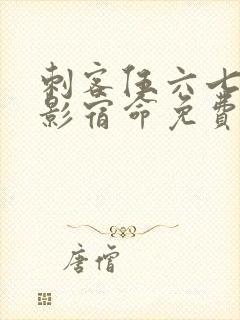 刺客伍六七
影宿命免费
唐僧